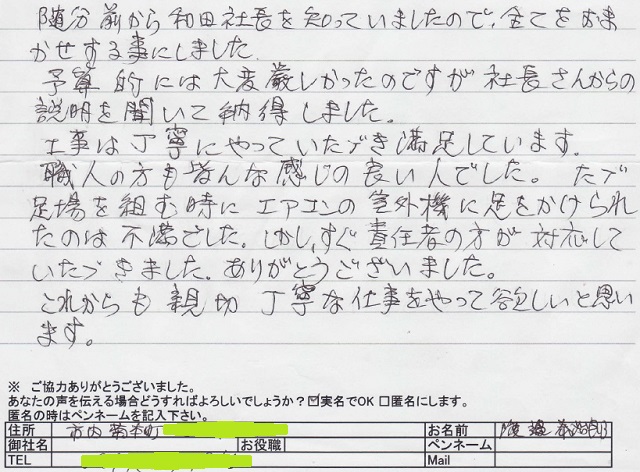 随分前から和田社長を知っていましたので、全てをおま
かせする事にしました。
予算的には大変厳しかったのですが社長さんからの
説明を聞いて納得しました。
工事は丁寧にやっていただき満足しています。
職人の方も皆んな感じの良い人でした。ただ
足場を組む時にエアコンの室外機に足をかけられ
たのは不満でした。しかし、すぐ責任者の方が対応して
いただきました。ありがとうございました。
これからも親切丁寧な仕事をやって欲しいと思い
ます。
※ ご協力ありがとうございました。
あなたの声を伝える場合どうすればよろしいでしょうか？☑実名でOK □匿名にします。
匿名の時はペンネームを記入下さい。
住所 市内 お名前 渡邉
御社名 お役職 ペンネーム
TEL Mail